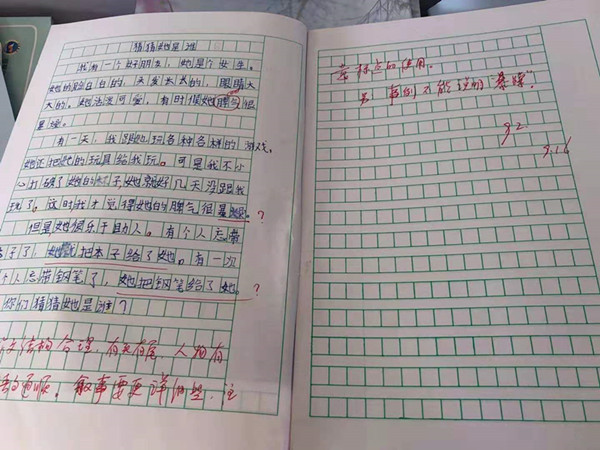 猜猜她是谁
我有一个好朋友,她是个女生。
她的脸白白的,头发长长的,眼睛大
大的,她活泼可爱,有时候她脾气很
有一天,我跟她玩各种各样的游戏。
她还把她的玩具给我玩。可是我不小
心打破了她的杯子,她就好几天没跟我
玩了。这时我才觉得她的脾气很暴躁。?
但是她很乐于助人。有个人忘带
本子了,她就把本子给了她。有一次
个人忘带钢笔了,她把钢笔给了她。?
你们猜猜她是谁?
文结构合理,有头有尾,人物有
通顺。叙事要更详细些,注
意标点的使用。
另:事例不能说明"暴躁"。
92
9.16